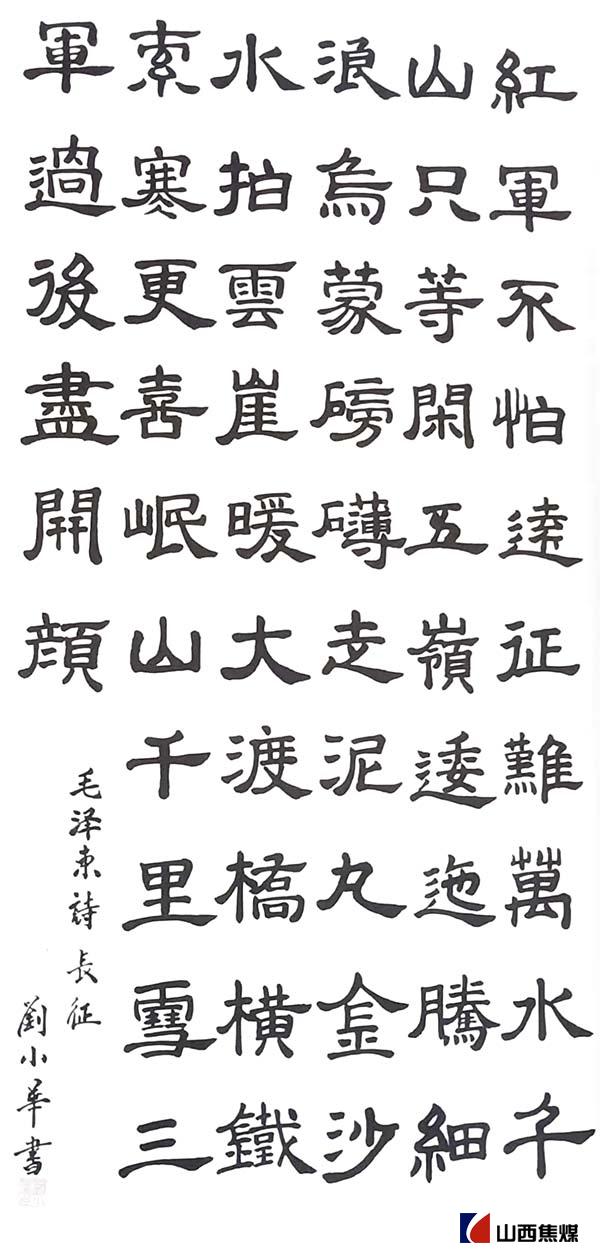 紅軍不怕遠征難萬水千
山只等閑五嶺逶迤騰細
浪烏蒙磅礴走泥丸金沙
水拍雲崖暖大渡橋橫鐵
索寒更喜岷山千里雪三
軍過後盡開顔
毛泽东詩長征
劉小華書
山西焦煤